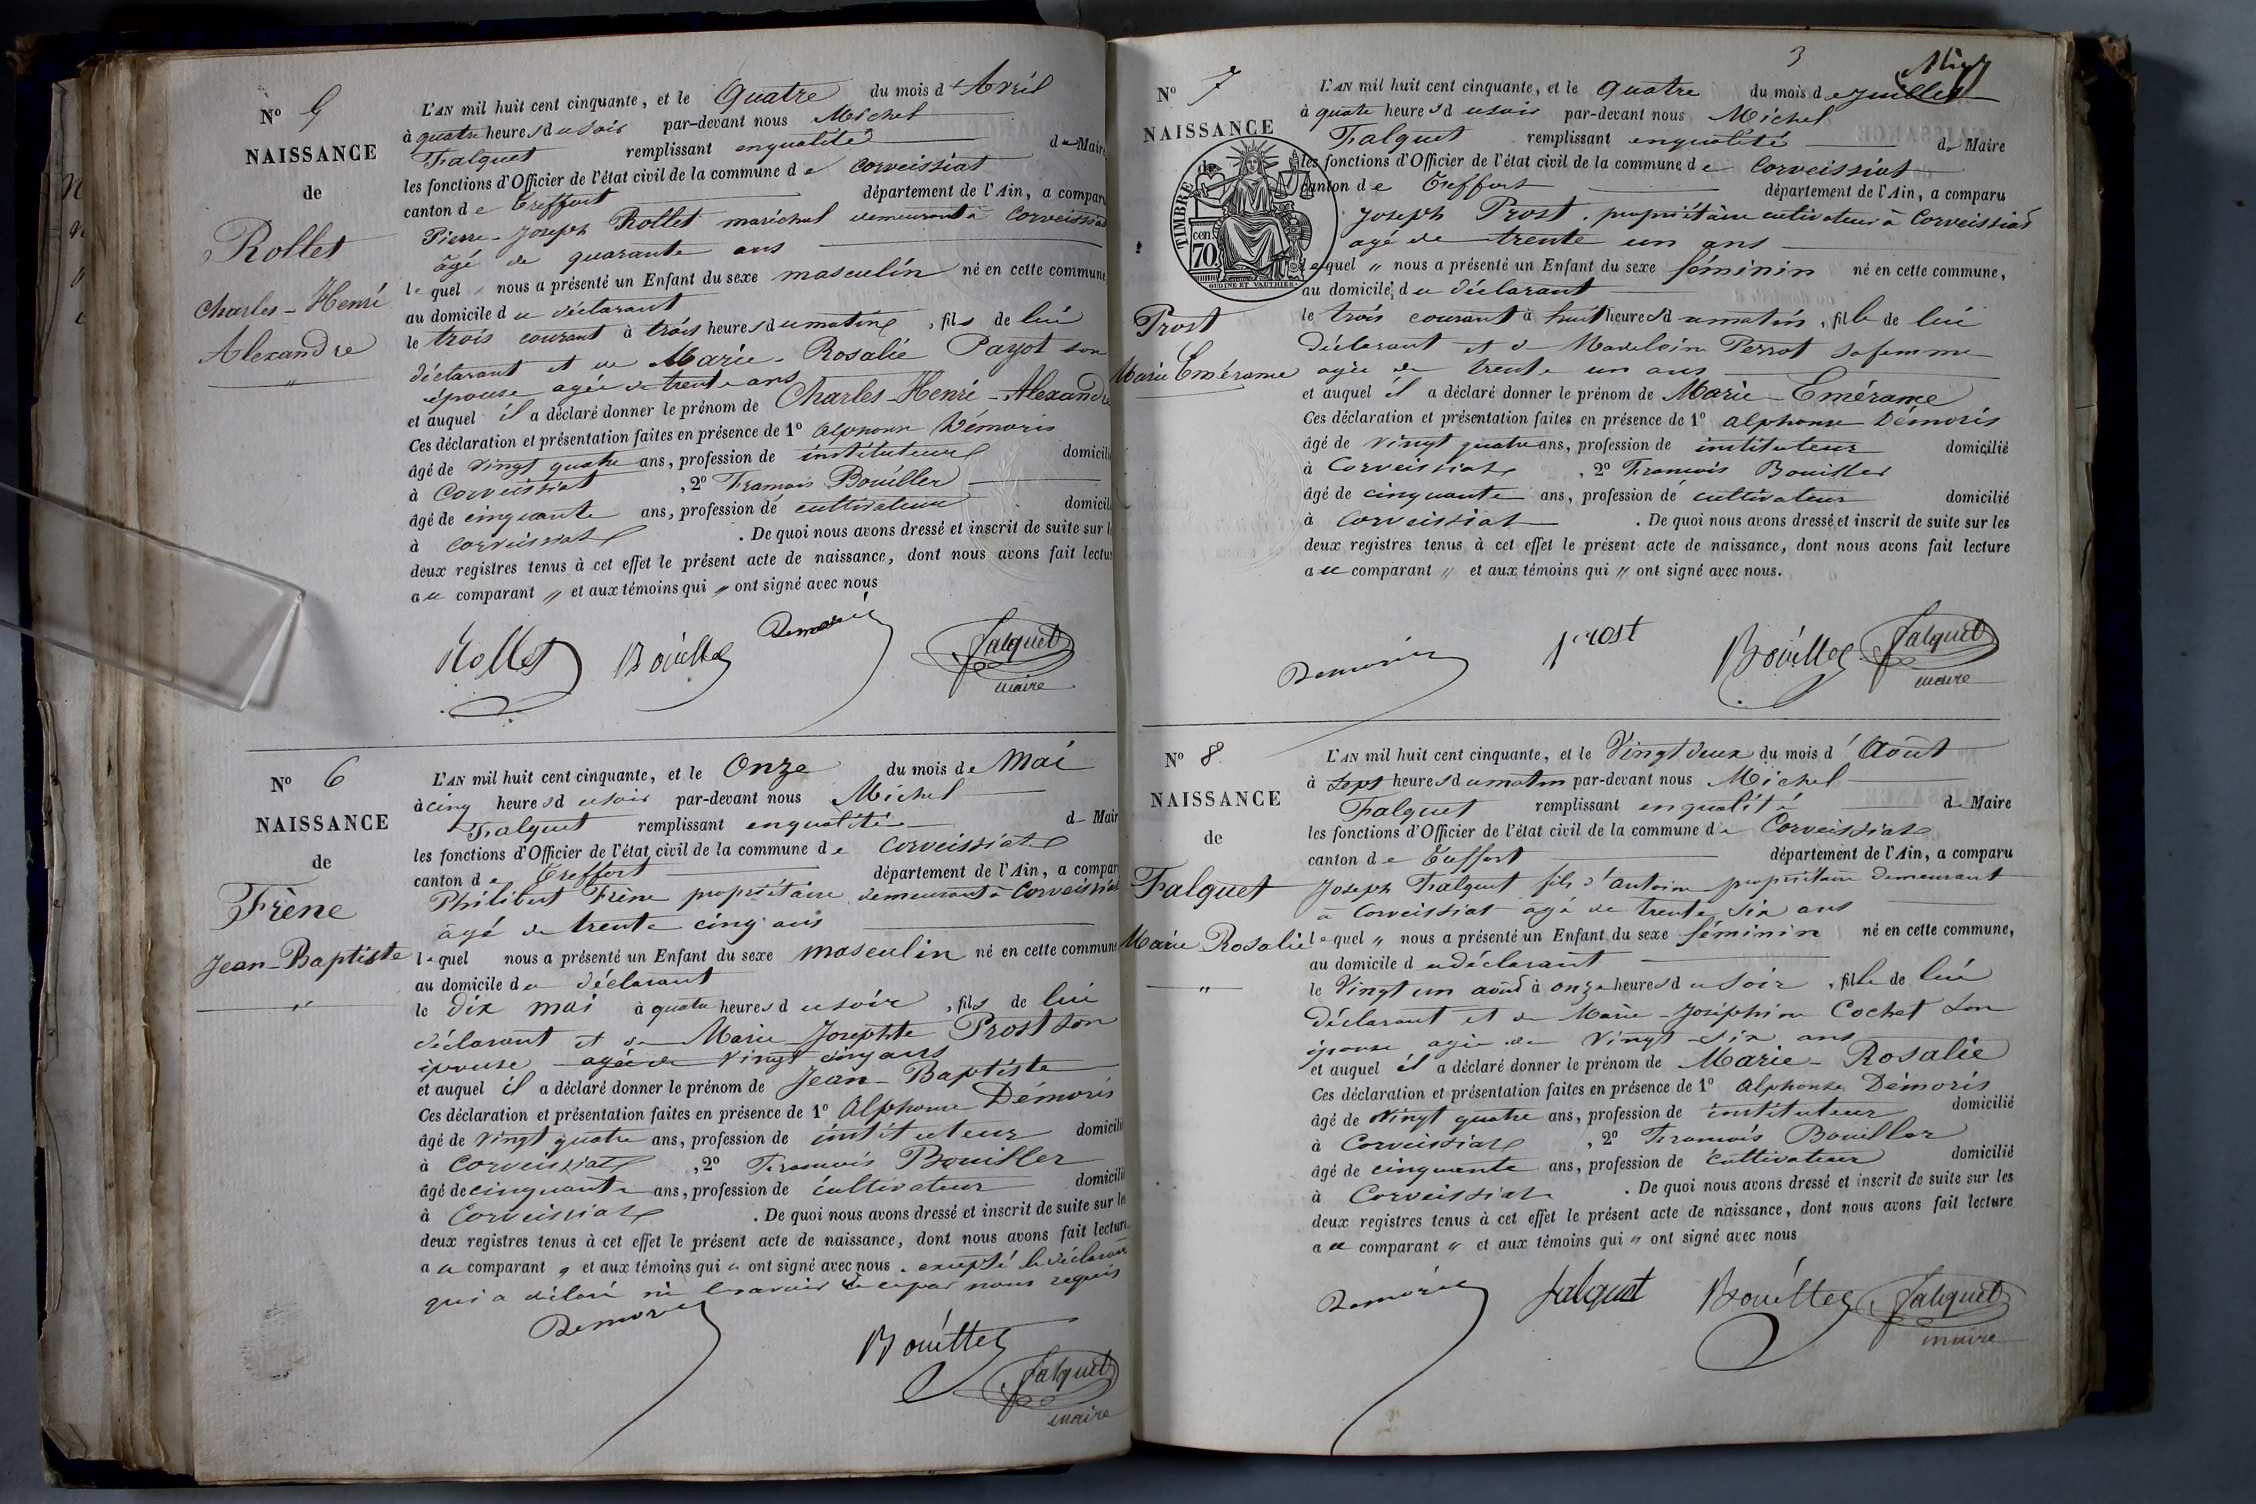 N° 5
NAISSANCE
de
Rollet
Charles-Henri
Alexandre
L'AN mil huit cent cinquante, et le Quatre du mois d'Avril
à quatre heures du soir par-devant nous Michel
Falquet remplissant en qualité de Maire
les fonctions d'Officier de l'état civil de la commune de Corveissiat
canton de Treffort département de l'Ain, a comparu
Pierre-Joseph Rollet maréchal demeurant à Corveissiat
âgé de quarante ans
lequel nous a présenté un Enfant du sexe masculin né en cette commune
au domicile du déclarant
le trois courant à trois heures du matin, fils de lui
déclarant et de Marie-Rosalie Payot son
épouse agée de trente ans
et auquel il a déclaré donner le prénom de Charles-Henri-Alexandre
Ces déclaration et présentation faites en présence de 1° Alphonse Démoris
âgé de vingt quatre ans, profession de instituteur domicilié
à Corveissiat, 2° François Bouiller
âgé de cinquante ans, profession de cultivateur domicilié
à Corveissiat. De quoi nous avons dressé et inscrit de suite sur les
deux registres tenus à cet effet le présent acte de naissance, dont nous avons fait lecture
au comparant " et aux témoins qui " ont signé avec nous
Rollet Bouiller Demoris Falquet
maire
N° 6
NAISSANCE
de
Frène
Jean-Baptiste
L'AN mil huit cent cinquante, et le Onze du mois de Mai
à cinq heures du soir par-devant nous Michel
Falquet remplissant en qualité de Maire
les fonctions d'Officier de l'état civil de la commune de Corveissiat
canton de Treffort département de l'Ain, a comparu
Philibert Frène propriétaire demeurant à Corveissiat
âgé de trente cinq ans
lequel nous a présenté un Enfant du sexe masculin né en cette commune
au domicile du déclarant
le dix mai à quatre heures du soir, fils de lui
déclarant et de Marie-Josephte Prost son
épouse agée de vingt cinq ans
et auquel il a déclaré donner le prénom de Jean-Baptiste
Ces déclaration et présentation faites en présence de 1° Alphonse Démoris
âgé de vingt quatre ans, profession de instituteur domicilié
à Corveissiat, 2° François Bouiller
âgé de cinquante ans, profession de cultivateur domicilié
à Corveissiat. De quoi nous avons dressé et inscrit de suite sur les
deux registres tenus à cet effet le présent acte de naissance, dont nous avons fait lecture
au comparant " et aux témoins qui " ont signé avec nous. excepté le déclarant
qui a déclaré ne le savoir de ce par nous requis
Demoris
Bouiller
Falquet
maire
3
N° 7
NAISSANCE
TIMBRE
cen. 70
OUDINÉ ET VAUTHIER.
Prost
Marie Emérame
L'AN mil huit cent cinquante, et le quatre du mois de juillet
à quatre heures du soir par-devant nous Michel
Falquet remplissant en qualité de Maire
les fonctions d'Officier de l'état civil de la commune de Corveissiat
canton de Treffort département de l'Ain, a comparu
Joseph Prost, propriétaire cultivateur à Corveissiat
agé de trente un ans
lequel " nous a présenté un Enfant du sexe féminin né en cette commune,
au domicile du déclarant
le trois courant à huit heures du matin, fille de lui
déclarant et de Madelein Perrot sa femme
agée de trente un ans
et auquel il a déclaré donner le prénom de Marie-Emérame
Ces déclaration et présentation faites en présence de 1° alphonse Démoris
âgé de vingt quatre ans, profession de instituteur domicilié
à Corveissiat, 2° François Bouiller
âgé de cinquante ans, profession de cultivateur domicilié
à Corveissiat. De quoi nous avons dressé et inscrit de suite sur les
deux registres tenus à cet effet le présent acte de naissance, dont nous avons fait lecture
au comparant " et aux témoins qui " ont signé avec nous.
Demoris prost Bouiller Falquet
maire
N° 8
NAISSANCE
de
Falquet
Marie Rosalie
"
L'AN mil huit cent cinquante, et le Vingt deux du mois d'Août
à sept heures du matin par-devant nous Michel
Falquet remplissant en qualité de Maire
les fonctions d'Officier de l'état civil de la commune de Corveissiat
canton de Treffort département de l'Ain, a comparu
Joseph Falquet fils d'antoine propriétaire demeurant
à Corveissiat âgé de trente six ans
lequel " nous a présenté un Enfant du sexe féminin né en cette commune,
au domicile du déclarant
le Vingt un août à onze heures du soir, fille de lui
déclarant et de Marie-Joséphine Cochet son
épouse agée de vingt-six ans
et auquel il a déclaré donner le prénom de Marie-Rosalie
Ces déclaration et présentation faites en présence de 1° alphonse Démoris
âgé de vingt quatre ans, profession de instituteur domicilié
à Corveissiat, 2° François Bouiller
âgé de cinquante ans, profession de cultivateur domicilié
à Corveissiat. De quoi nous avons dressé et inscrit de suite sur les
deux registres tenus à cet effet le présent acte de naissance, dont nous avons fait lecture
au comparant " et aux témoins qui " ont signé avec nous
Demoris falquet Bouiller Falquet
maire